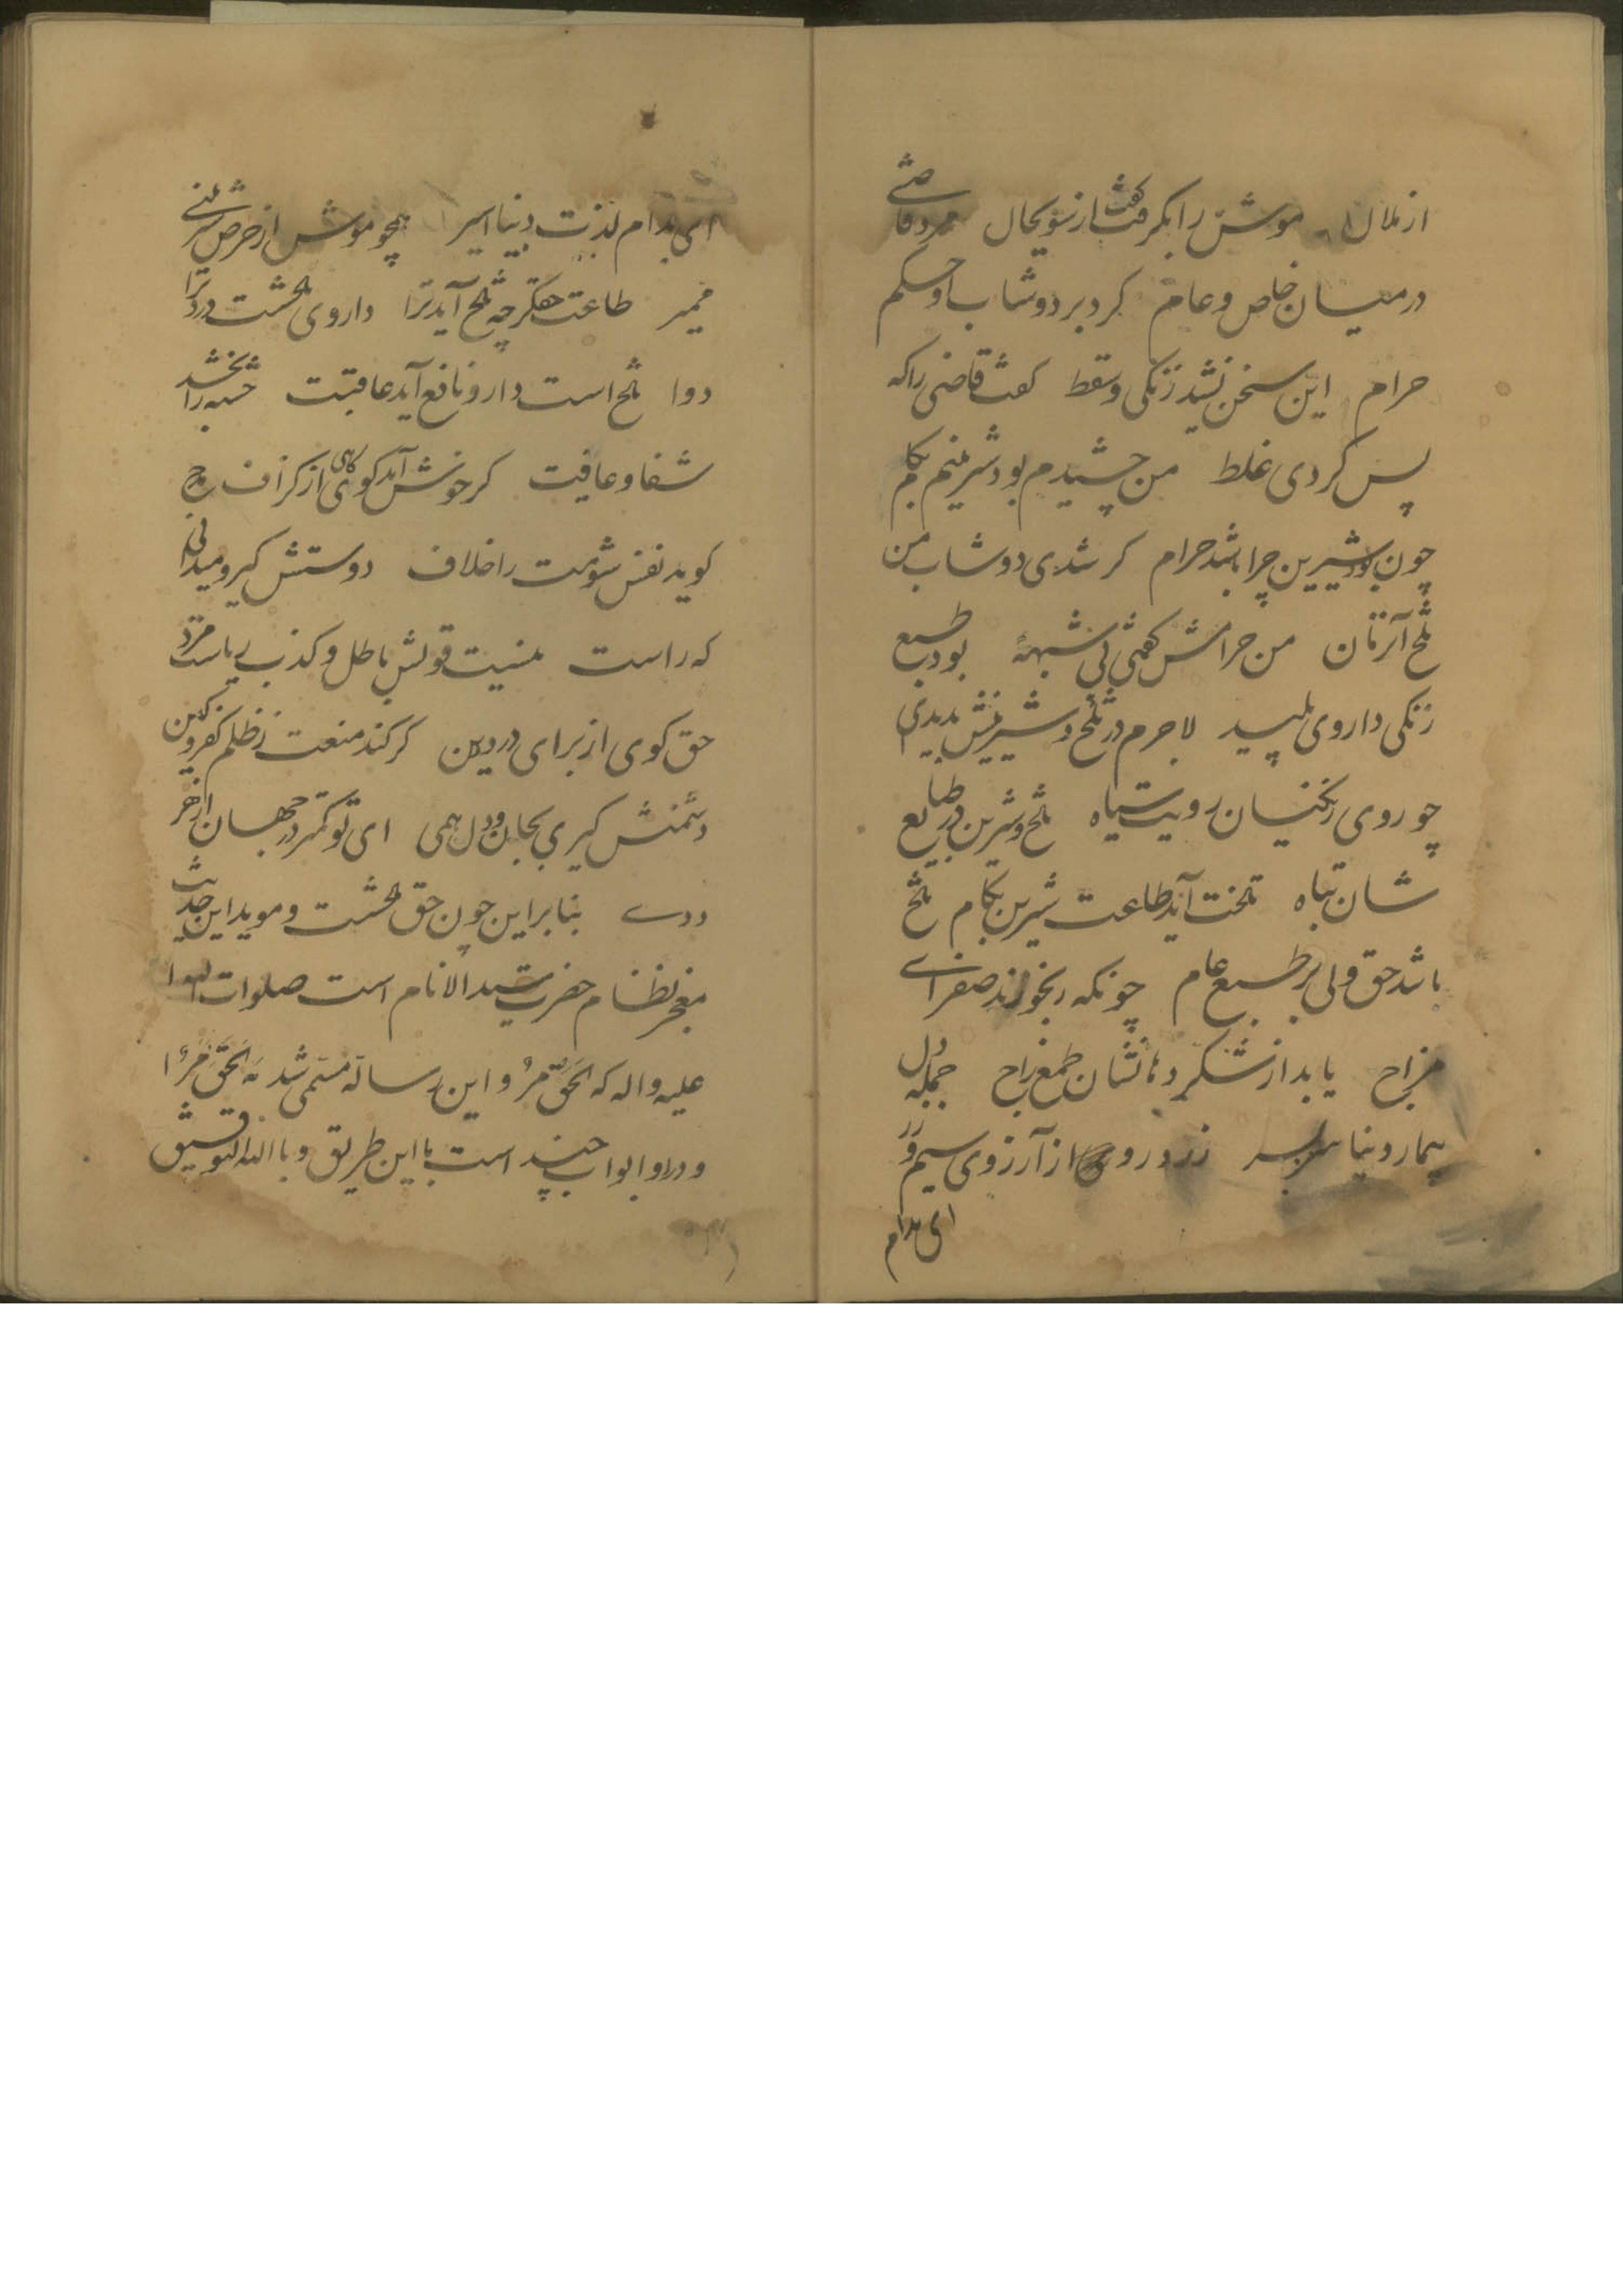 از ملال موشش را بگرفت گفت از سویحال مرد قاضی
در میان خاص و عام کرد بر دوشاب او حکم
حرام این سخن نشنید زنکی و سقط گفت قاضی را که
پس کردی غلط من چشیدم بود شیرینم بکام
چون بود شیرین چرا باشد حرام کر شدی دوشاب من
تلخ آنزمان من حرامش گفتمی بی شبهه بود طبع
زنکی داروی پلید لاجرم در تلخ و شیرینش بدیدی
چو روی زنکیان رویت سیاه تلخ و شیرین در طبایع
شان تباه تلخت آید طاعت شیرین بکام تلخ
باشد حق ولی بر طبع عام چونکه رنجورند صفرای
مزاج یابد از شکر دهانشان طعم زاج جمله دل
بیمار دنیا سربسر زرد روی از آرزوی سیم و زر
ای بدام
ای بدام لذت دنیا اسیر همچو موش از حرص شیرینی
ممیر طاعت حق گرچه تلخ آید ترا داروی تلخست درد ترا
دوا تلخ است دارو نافع آید عاقبت خسته را بخشد
شفا و عافیت کر خوش آمد کوی از کزاف
کوید نفس شومت را خلاف دوستش کیری و میدانی
که راست نیست قولش باطل و کذب ریاست مرد
حق کوی از برای درد دین کر کند منعت ز ظلم و کفر و کین
دشمنش کیری بجان و دل همی ای تو کمتر در جهان از خر
ددے بنابراین چون حق تلخست و موید این حدیث
معجز نظام حضرت سید الانام است صلوات الله
علیه و اله که الحق مر و این رساله مسمی شد به الحق مر
و در او ابواب چند است با این طریق و بالله التوفیق